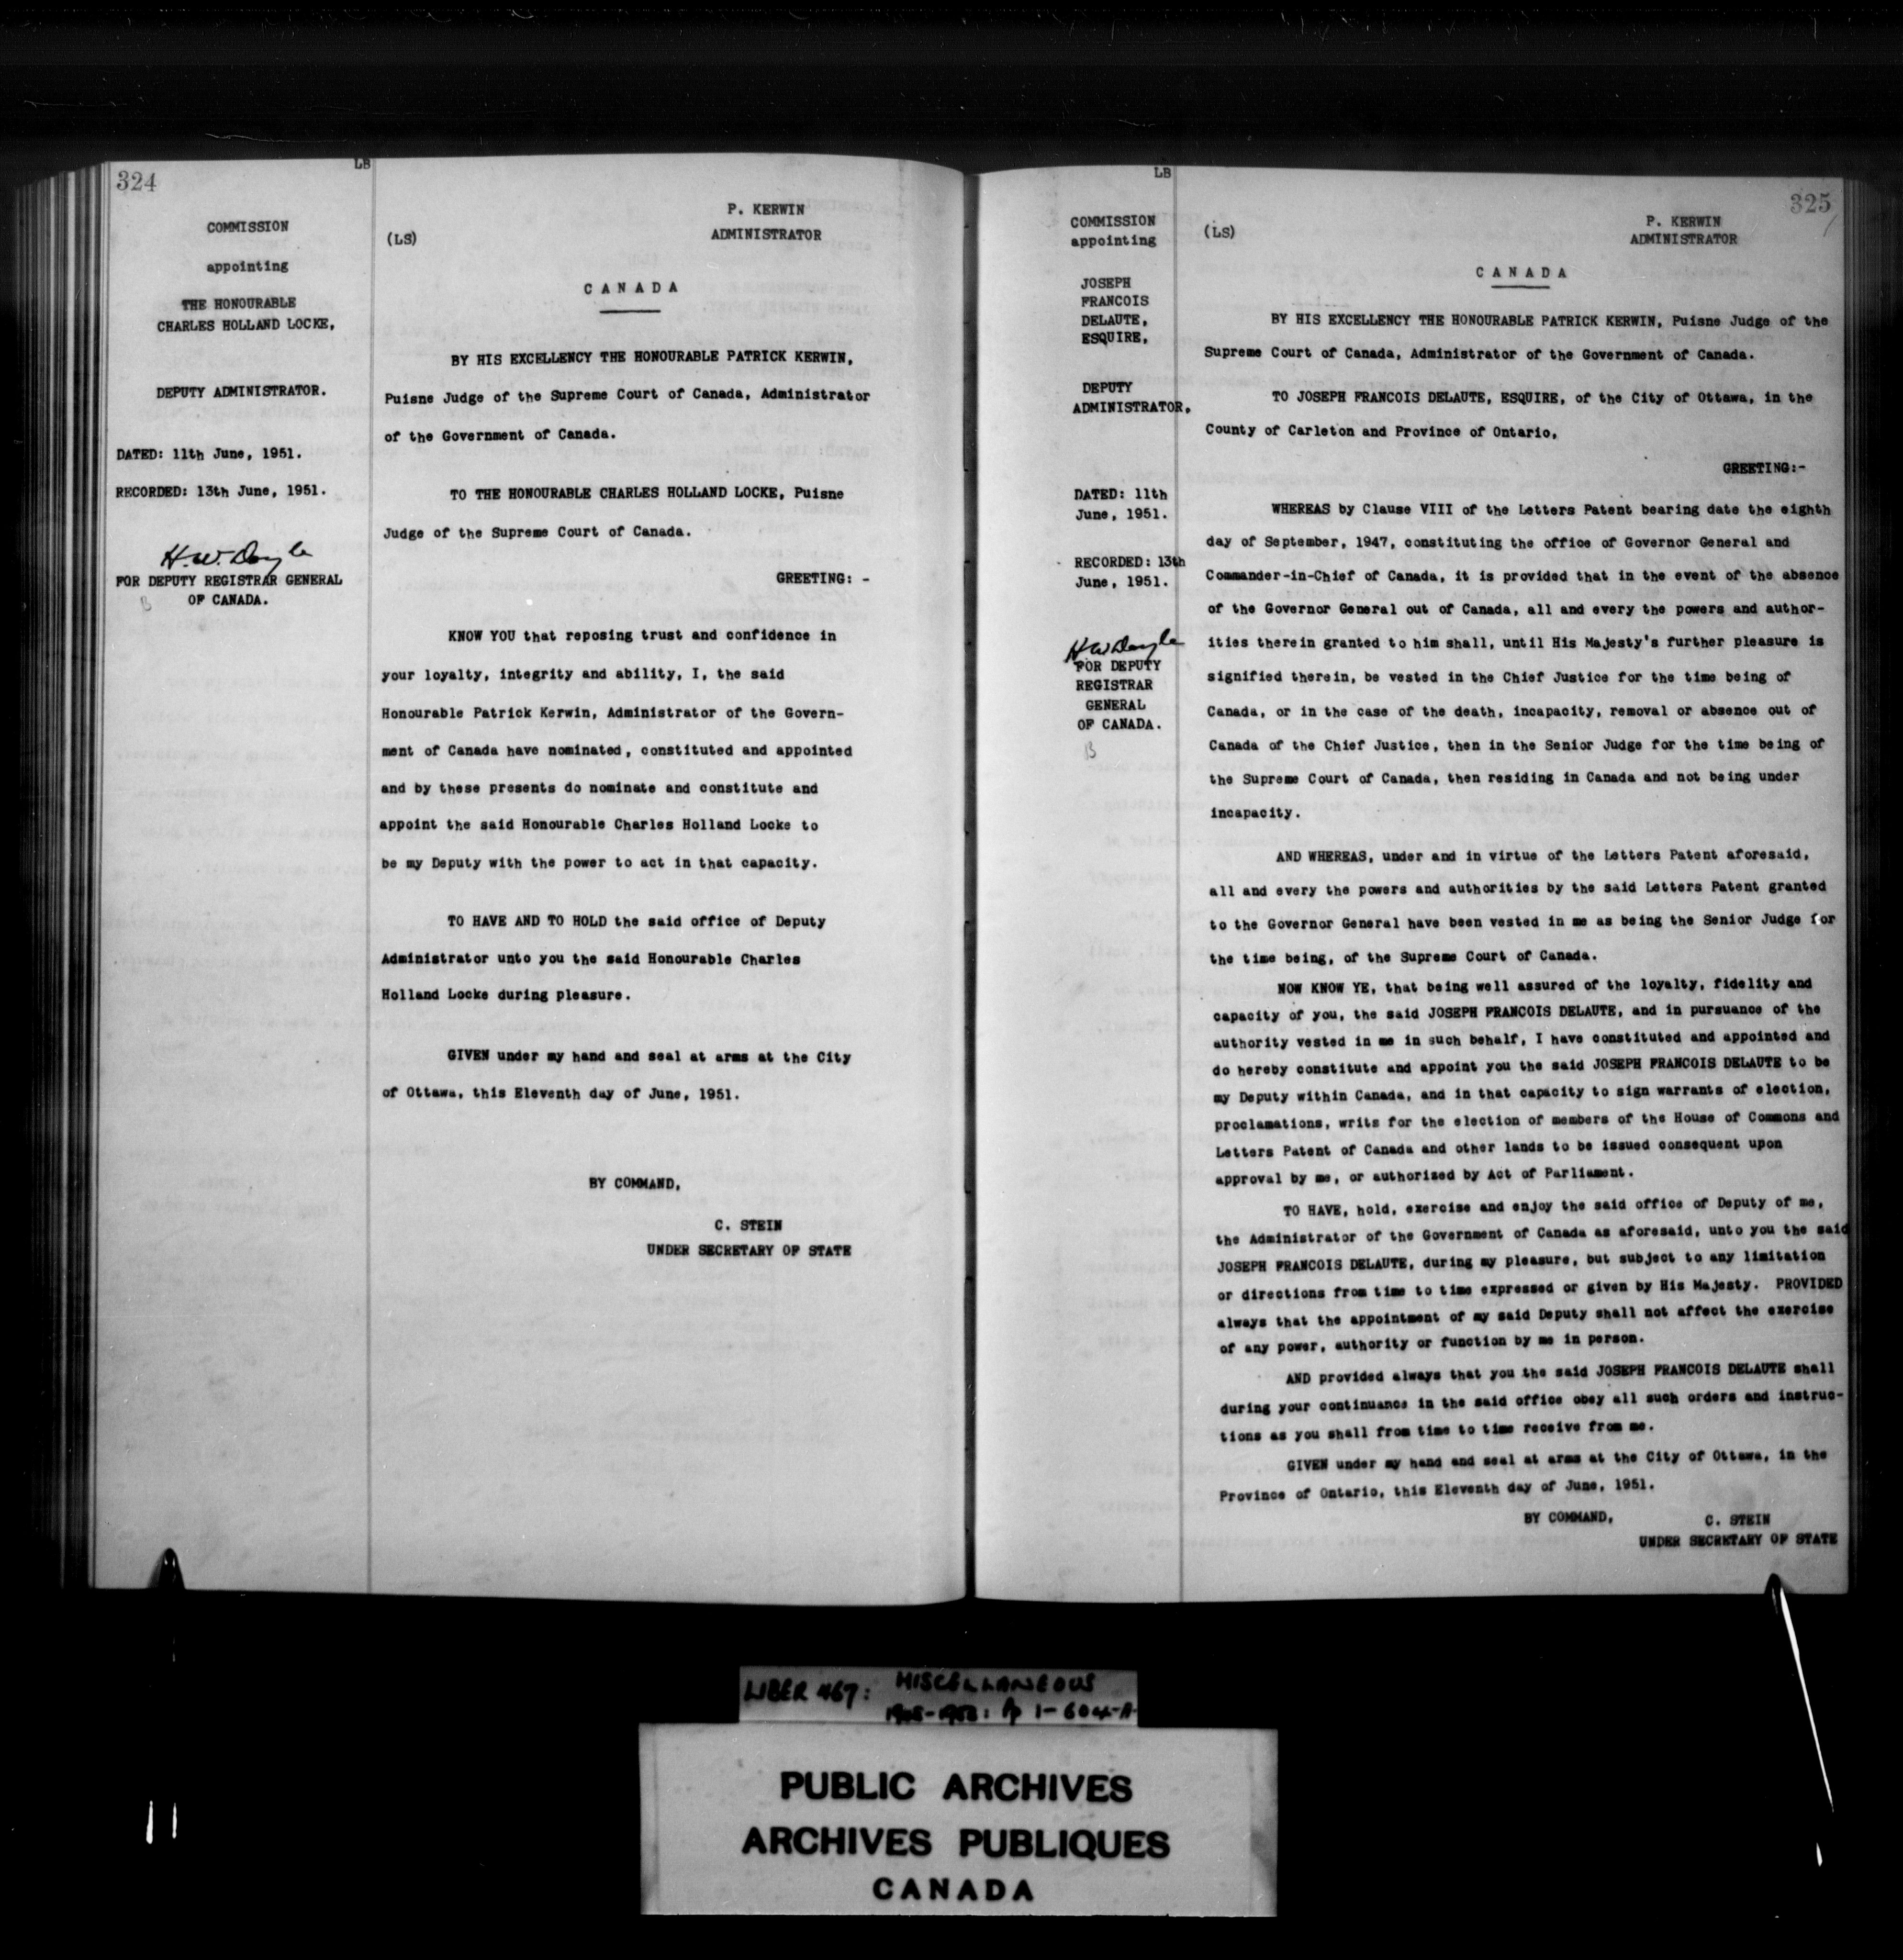 LB
324
COMMISSION
appointing
THE HONOURABLE
CHARLES HOLLAND LOCKE,
DEPUTY ADMINISTRATOR.
DATED: 11th June, 1951.
RECORDED: 13th June, 1951.
H.W. Doyle
FOR DEPUTY REGISTRAR GENERAL
OF CANADA.
B
P. KERWIN
(LS)
ADMINISTRATOR
CANADA
BY HIS EXCELLENCY THE HONOURABLE PATRICK KERWIN,
Puisne Judge of the Supreme Court of Canada, Administrator
of the Government of Canada.
TO THE HONOURABLE CHARLES HOLLAND LOCKE, Puisne
Judge of the Supreme Court of Canada.
GREETING: -
KNOW YOU that reposing trust and confidence in
your loyalty, integrity and ability, I, the said
Honourable Patrick Kerwin, Administrator of the Govern-
ment of Canada have nominated, constituted and appointed
and by these presents do nominate and constitute and
appoint the said Honourable Charles Holland Locke to
be my Deputy with the power to act in that capacity.
TO HAVE AND TO HOLD the said office of Deputy
Administrator unto you the said Honourable Charles
Holland Locke during pleasure.
GIVEN under my hand and seal at arms at the City
of Ottawa, this Eleventh day of June, 1951.
BY COMMAND,
C. STEIN
UNDER SECRETARY OF STATE
LB
325
COMMISSION
appointing
JOSEPH
FRANCOIS
DELAUTE,
ESQUIRE,
DEPUTY
ADMINISTRATOR,
DATED: 11th
June, 1951.
RECORDED: 13th
June, 1951.
H W Doyle
FOR DEPUTY
REGISTRAR
GENERAL
OF CANADA.
B
P. KERWIN
(LS)
ADMINISTRATOR
CANADA
BY HIS EXCELLENCY THE HONOURABLE PATRICK KERWIN, Puisne Judge of the
Supreme Court of Canada, Administrator of the Government of Canada.
TO JOSEPH FRANCOIS DELAUTE, ESQUIRE, of the City of Ottawa, in the
County of Carleton and Province of Ontario,
GREETING:-
WHEREAS by Clause VIII of the Letters Patent bearing date the eighth
day of September, 1947, constituting the office of Governor General and
Commander-in-Chief of Canada, it is provided that in the event of the absence
of the Governor General out of Canada, all and every the powers and author-
ities therein granted to him shall, until His Majesty's further pleasure is
signified therein, be vested in the Chief Justice for the time being of
Canada, or in the case of the death, incapacity, removal or absence out of
Canada of the Chief Justice, then in the Senior Judge for the time being of
the Supreme Court of Canada, then residing in Canada and not being under
incapacity.
AND WHEREAS, under and in virtue of the Letters Patent aforesaid,
all and every the powers and authorities by the said Letters Patent granted
to the Governor General have been vested in me as being the Senior Judge for
the time being, of the Supreme Court of Canada.
NOW KNOW YE, that being well assured of the loyalty, fidelity and
capacity of you, the said JOSEPH FRANCOIS DELAUTE, and in pursuance of the
authority vested in me in such behalf, I have constituted and appointed and
do hereby constitute and appoint you the said JOSEPH FRANCOIS DELAUTE to be
my Deputy within Canada, and in that capacity to sign warrants of election,
proclamations, writs for the election of members of the House of Commons and
Letters Patent of Canada and other lands to be issued consequent upon
approval by me, or authorized by Act of Parliament.
TO HAVE, hold, exercise and enjoy the said office of Deputy of me,
the Administrator of the Government of Canada as aforesaid, unto you the said
JOSEPH FRANCOIS DELAUTE, during my pleasure, but subject to any limitation
or directions from time to time expressed or given by His Majesty. PROVIDED
always that the appointment of my said Deputy shall not affect the exercise
of any power, authority or function by me in person.
AND provided always that you the said JOSEPH FRANCOIS DELAUTE shall
during your continuance in the said office obey all such orders and instruc-
tions as you shall from time to time receive from me.
GIVEN under my hand and seal at arms at the City of Ottawa, in the
Province of Ontario, this Eleventh day of June, 1951.
BY COMMAND,
C. STEIN
UNDER SECRETARY OF STATE
LIBER 467: MISCELLANEOUS
pp 1-604-A
PUBLIC ARCHIVES
ARCHIVES PUBLIQUES
CANADA